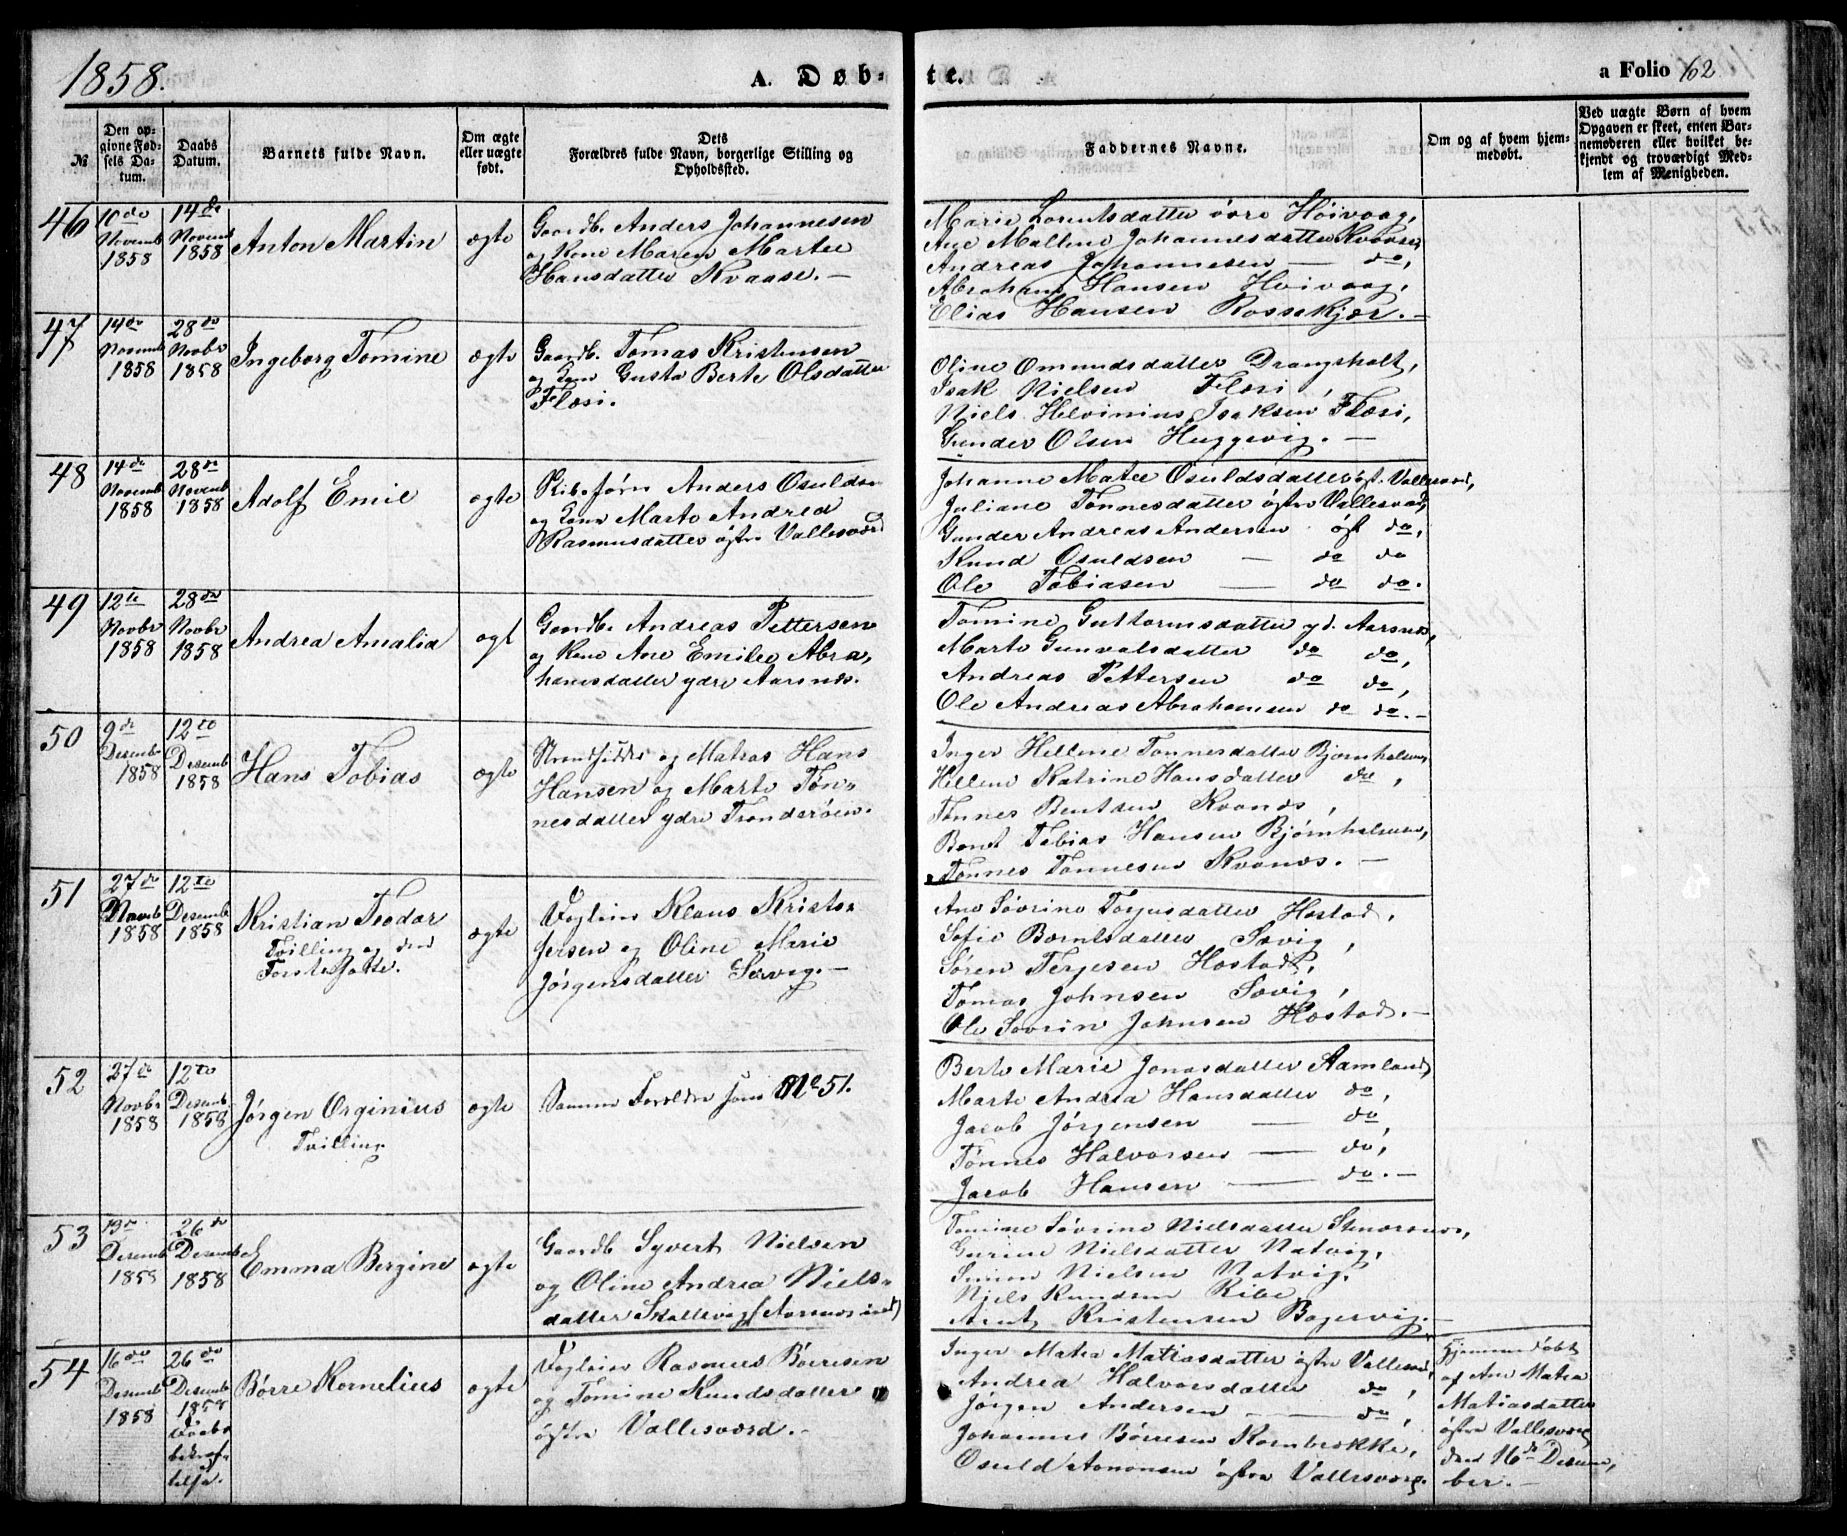 1858.
A. Døb-
te.
a Folio 62
№
Den op-
givne Fød-
sels Da-
tum.
Daabs
Datum.
Barnets fulde Navn.
Om ægte
eller uægte
født.
Dets
Forældres fulde Navn, borgerlige Stilling og
Opholdssted.
Faddernes Navne.
Om og af hvem hjem-
medøbt.
Ved uægte Børn af hvem
Opgaven er skeet, enten Bar-
nemoderen eller hvilket be-
kjendt og troværdigt Med-
lem af Menigheden.
46
10de
Novemb
1858
14de
Novemb
1858
Anton Martin
ægte
Gaardb. Anders Johannesen
og Kone Maren Martee
Hansdatter Kvaase. —
Marie Lorentsdatter øvre Høivaag,
Ane Mallene Johannesdatter Kvaase,
Andreas Johannesen — do,
Abraham Hansen Høivaag,
Elias Hansen Rossekjær. —
47
14de
Novemb
1858
28de
Novbr
1858
Ingeborg Tomine
ægte
Gaardb. Tomas Kristensen
og Kone Gusta Berte Olsdatter
Flæsi.
Oline Omundsdatter Drangsholt,
Isak Nielsen Flæsi,
Niels Helvinius Isaksen Flæsi,
Gunder Olsen Huggevig. —
48
14de
Novemb
1858
28de
Novemb
1858
Adolf Emil
ægte
Anders Osulds
og Kone Marte Andrea
Rasmusdatter østre Vallesværd
Johanne Matee Osuldsdatter øst. Vallesværd,
Juliane Tønnesdatter østre Vallesværd,
Gunder Andreas Andersen øst do,
Knud Osuldsen — do do
Ole Tobiasen — do do.
49
12te
Novbr
1858
28de
Novbr
1858
Andrea Amalia
ægt
Gaardb. Andreas Pettersen
og Kone Ane Emilee Abra,
hamsdatter ydre Aarsnes.
Tomine Guttormsdatter yd. Aarsnes,
Marte Gunvalsdatter do do,
Andreas Pettersen do do,
Ole Andreas Abrahamsen do do. —
50
9de
Desemb
1858
12te
Desemb
1858
Hans Tobias
ægte
Strandsidder og Matros Hans
Hansen og Marte Tøn-
nesdatter ydre Trondsrøen.
Inger Hellene Tønnesdatter Bjørnholmen,
Hellene Katrine Hansdatter do,
Tønnes Bentsen Kvanes,
Bent Tobias Hansen Bjørnholmen,
Tønnes Tønnesen Kvanes. —
51
27de
Novmb
1858
12te
Desemb
1858
Kristian Teodor
Tvilling og den
Førstefødte.
ægte
Logleier Klaus Kristo-
fersen og Oline Marie
Jørgensdatter Sævig. —
Ane Søvrine Torjusdatter Hæstad,
Sofie Berntsdatter Sævig,
Søren Terjesen Hæstad,
Tomas Johnsen Sævig,
Ole Søvrin Johnsen Hæstad. —
52
27de
Novbr
1858
12te
Desemb
1858
Jørgen Orginius
Tvilling
ægte
Samme Forældre som No 51.
Berte Marie Jonasdatter Aamland,
Marte Andrea Hansdatter do,
Jacob Jørgensen — do,
Tønnes Halvorsen — do,
Jacob Hansen — do. —
53
13de
Desemb
1858
26de
Desemb
1858
Emma Bergine
ægte
Gaardb Syvert Nielsen
og Oline Andrea Niels-
datter Skallevig (Aarsnes ind)
Tomine Søvrine Nielsdatter Stenersnes,
Gurine Nielsdatter Natvig,
Simen Nielsen Natvig,
Niels Knudsen Ribe,
Arnt Kristensen Bagervig. —
54
16de
Desemb
1858
26de
Desemb
1858
Daabs
bekræf-
telse.
Børre Kornelius
ægte
Logleier Rasmus Børresen
og Tomine Knudsdatter
østre Vallesværd. —
Inger Matea Matiasdatter østre Vallesværd,
Andrea Halvorsdatter do,
Jørgen Andersen — do,
Johannes Børresen Kornbrække,
Osuld Aanonsen østre Vallesværd.
Hjemmedøbt
af Ane Matea
Matiasdatter
østre Vallesværd
den 16de Desem,
ber. —